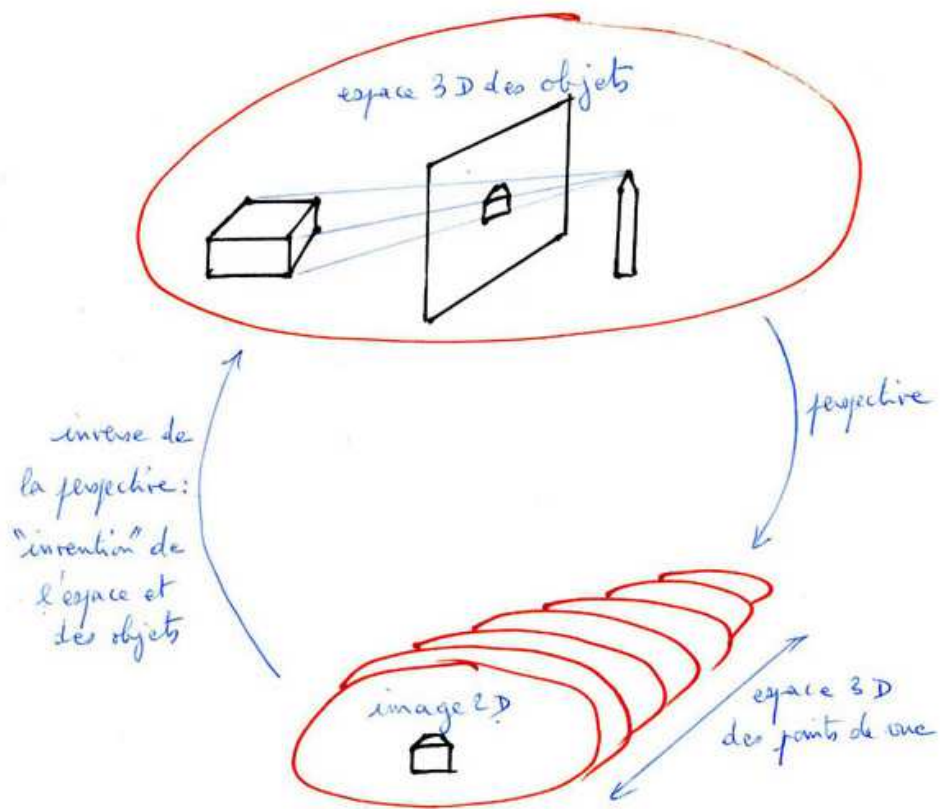 espace 3D des objets
perspective
inverse de
la perspective :
"invention" de
l'espace et
des objets
image 2D
espace 3D
des points de vue